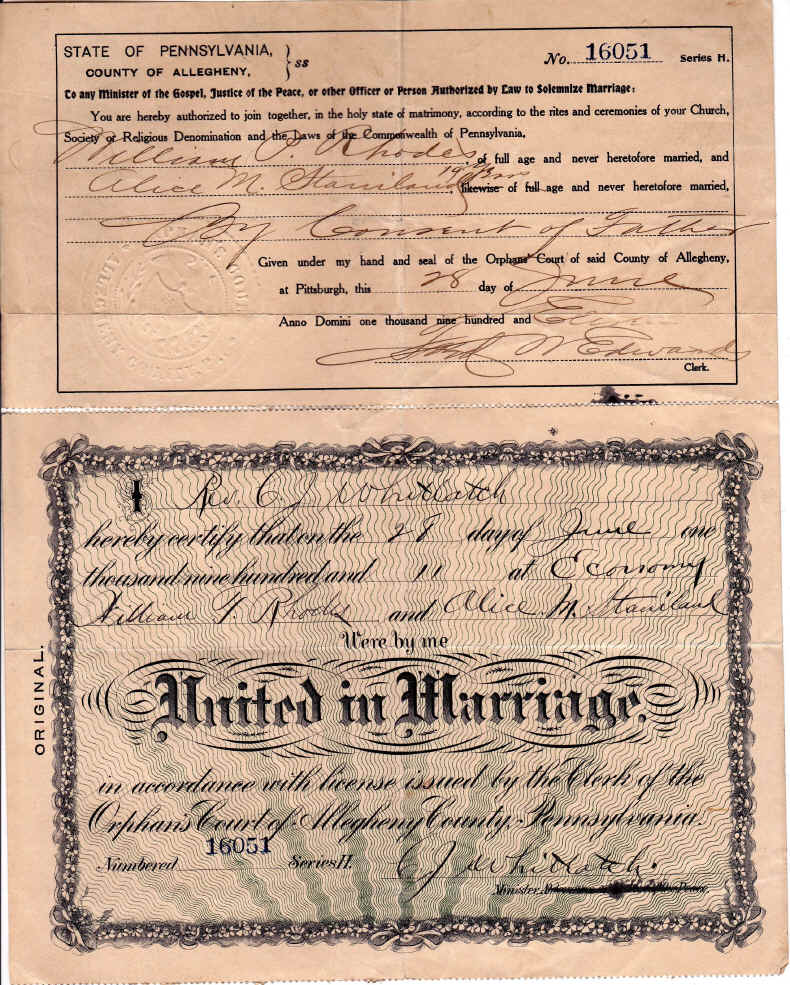 STATE OF PENNSYLVANIA,
COUNTY OF ALLEGHENY,
ss
No. 16051 Series H.
To any Minister of the Gospel, Justice of the Peace, or other Officer or Person Authorized by Law to Solemnize Marriage:
You are hereby authorized to join together, in the holy state of matrimony, according to the rites and ceremonies of your Church,
Society or Religious Denomination and the Laws of the Commonwealth of Pennsylvania,
William P. Rhodes of full age and never heretofore married, and
Alice M. Staniland likewise of full age and never heretofore married,
By Consent of Father
Given under my hand and seal of the Orphans' Court of said County of Allegheny,
at Pittsburgh, this 28 day of June
Anno Domini one thousand nine hundred and
W Edwards
Clerk.
ORIGINAL.
I Rev. C. J Whitlatch
hereby certify that on the 28 day of June one
thousand nine hundred and 11 at Economy
William T. Rhodes and Alice M. Staniland
Were by me
United in Marriage,
in accordance with license issued by the Clerk of the
Orphan's Court of Allegheny County, Pennsylvania.
Numbered 16051 Series H. C J Whitlatch
Minister